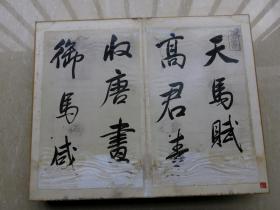 天馬賦
高君素
收唐畫
御馬咸